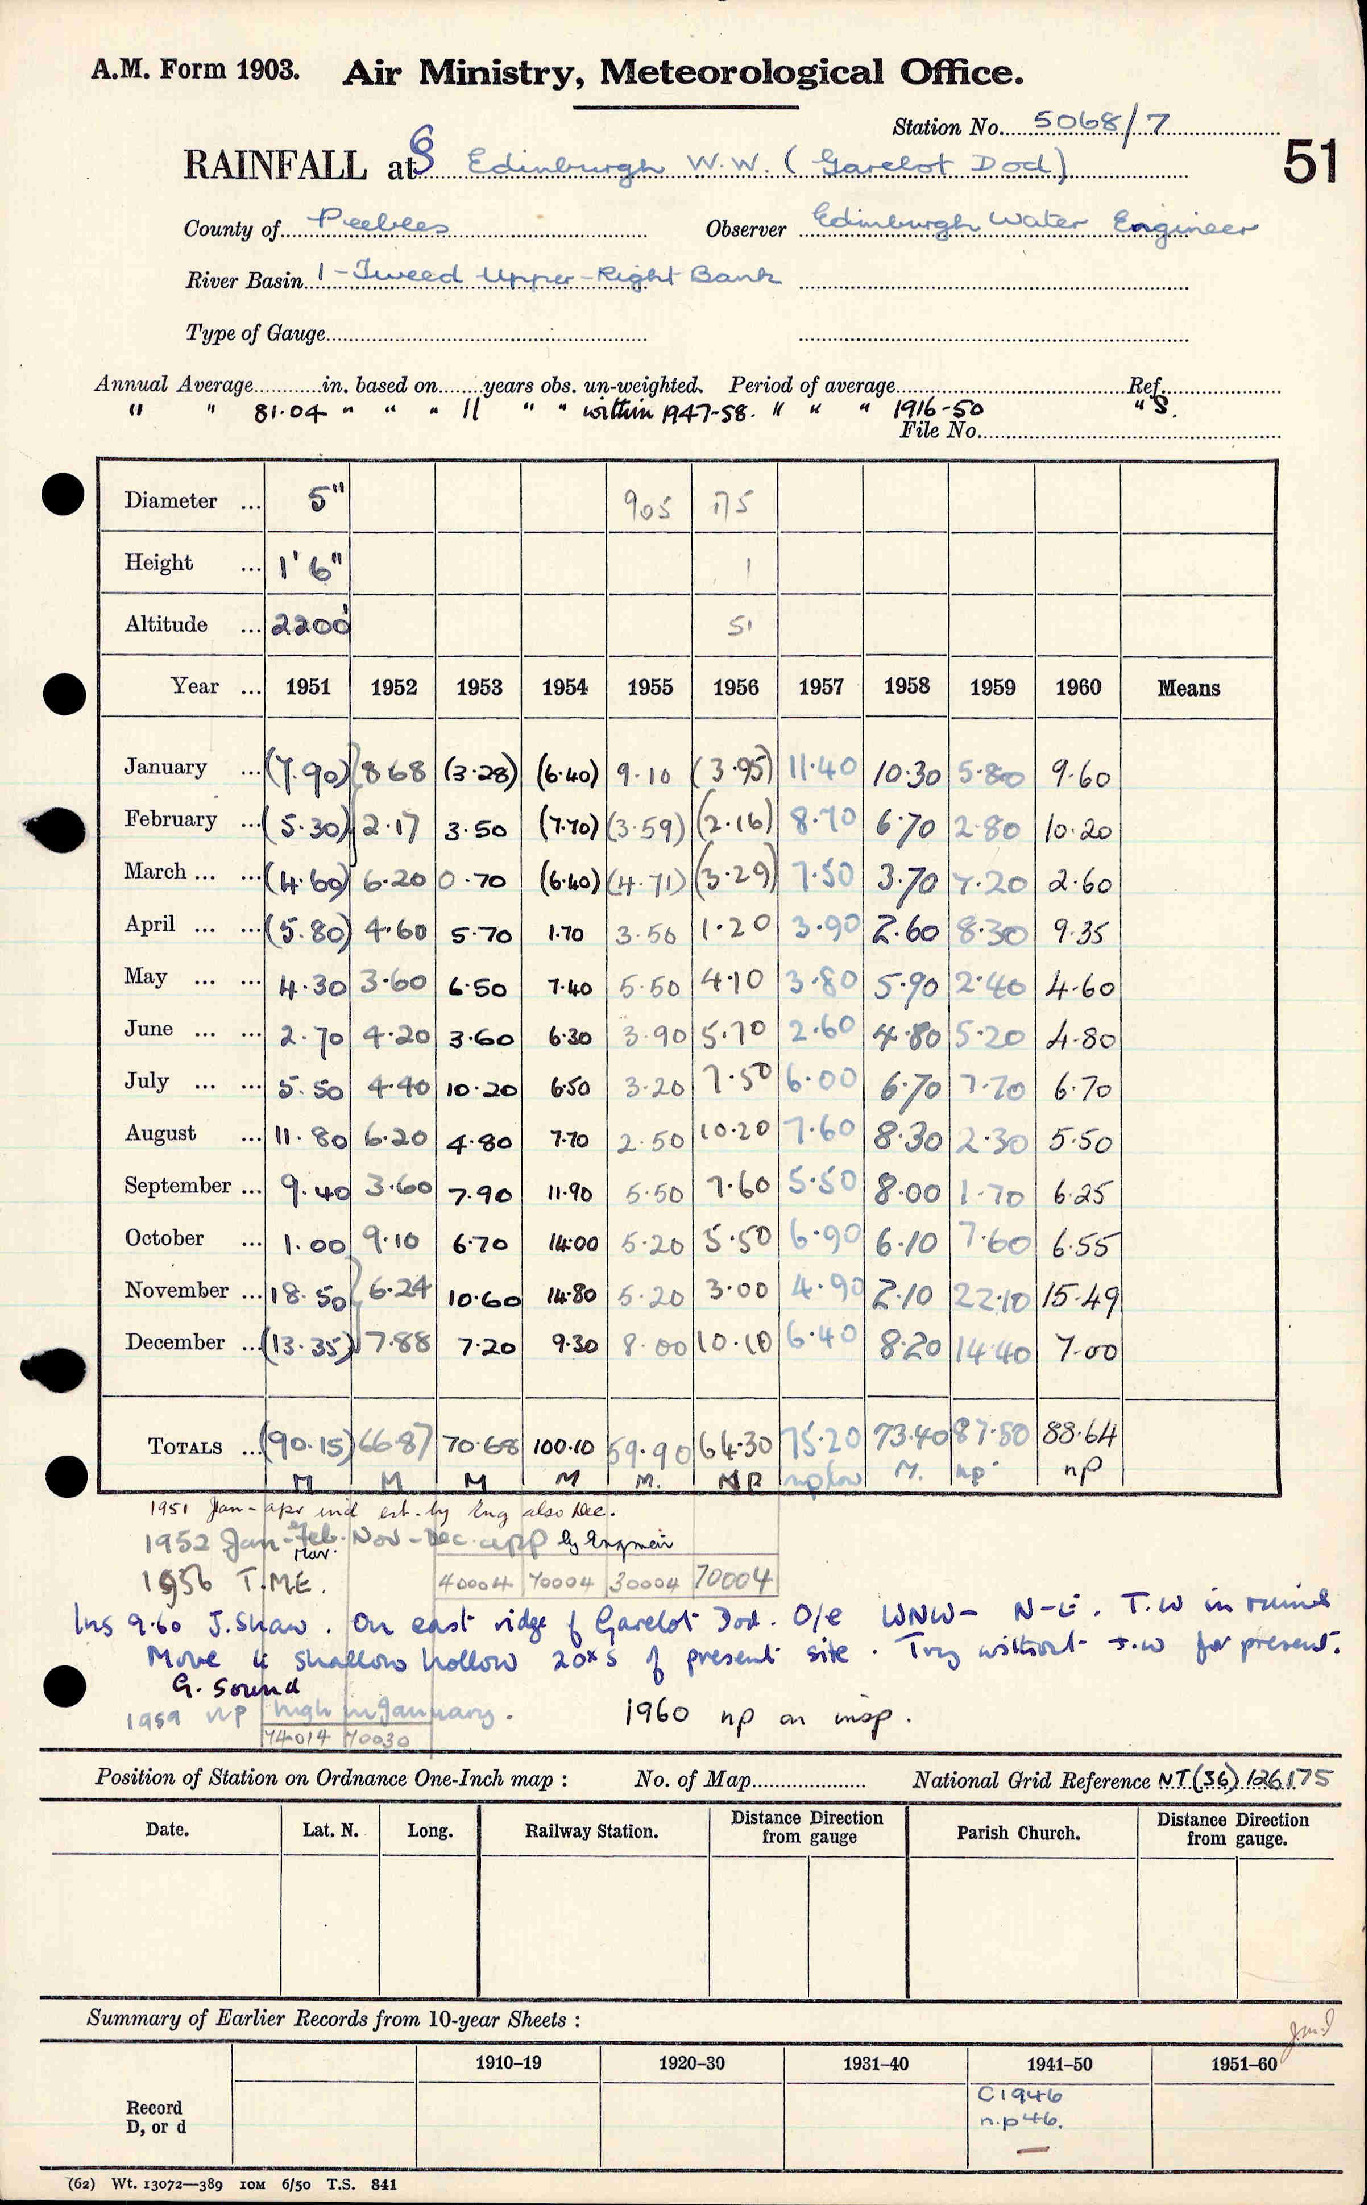 A.M. Form 1903. Air Ministry, Meteorological Office.
Station No. 5068/7
RAINFALL at § Edinburgh W.W. (Garelot Dod)
51
County of Peebles Observer Edinburgh Water Engineer
River Basin 1-Tweed Upper-Right Bank
Type of Gauge
Annual Average in. based on years obs. un-weighted. Period of average Ref.
" " 81.04 " " " 11 " " within 1947-58. " " " 1916-50 " S.
File No.
Diameter ... 5" 905 175
Height ... 1' 6" 1
Altitude ... 2200' 51
Year ... 1951 1952 1953 1954 1955 1956 1957 1958 1959 1960 Means
January ... (7.90) 8.68 (3.28) (6.40) 9.10 (3.95) 11.40 10.30 5.80 9.60
February ... (5.30) 2.17 3.50 (7.70) (3.59) (2.16) 8.70 6.70 2.80 10.20
March ... ... (4.60) 6.20 0.70 (6.40) (4.71) (3.29) 7.50 3.70 7.20 2.60
April ... ... (5.80) 4.60 5.70 1.70 3.50 1.20 3.90 2.60 8.30 9.35
May ... ... 4.30 3.60 6.50 7.40 5.50 4.10 3.80 5.90 2.40 4.60
June ... ... 2.70 4.20 3.60 6.30 3.90 5.70 2.60 4.80 5.20 4.80
July ... ... 5.50 4.40 10.20 6.50 3.20 7.50 6.00 6.70 7.70 6.70
August ... 11.80 6.20 4.80 7.70 2.50 10.20 7.60 8.30 2.30 5.50
September ... 9.40 3.60 7.90 11.90 5.50 7.60 5.50 8.00 1.70 6.25
October ... 1.00 9.10 6.70 14.00 5.20 5.50 6.90 6.10 7.60 6.55
November ... 18.50 6.24 10.60 14.80 5.20 3.00 4.90 2.10 22.10 15.49
December ... (13.35) 7.88 7.20 9.30 8.00 10.10 6.40 8.20 14.40 7.00
TOTALS ... (90.15) 66.87 70.68 100.10 59.90 64.30 75.20 73.40 87.50 88.64
M M M M M. NP np low M. np. np
1951 Jan-apr incl est. by Eng also Dec.
1952 Jan-Feb. Nov-Dec. app by Engineer
Mar.
1956 T.M.E. 40004 70004 30004 70004
Ins 9.60 J.Shaw. On east ridge of Garelot Dod. O/e WNW- N-E. T.W in ruins
Move to shallow hollow 20x S of present site. Try without T.W for present.
G. Sound
1959 np high in January. 1960 np on insp.
74014 70030
Position of Station on Ordnance One-Inch map : No. of Map National Grid Reference NT(36) 126175
Date. Lat. N. Long. Railway Station. Distance from gauge Direction Parish Church. Distance from gauge. Direction
Summary of Earlier Records from 10-year Sheets :
1910-19 1920-30 1931-40 1941-50 1951-60
Record D, or d
C1946
n.p 46.
—
(62) Wt. 13072—389 10M 6/50 T.S. 841